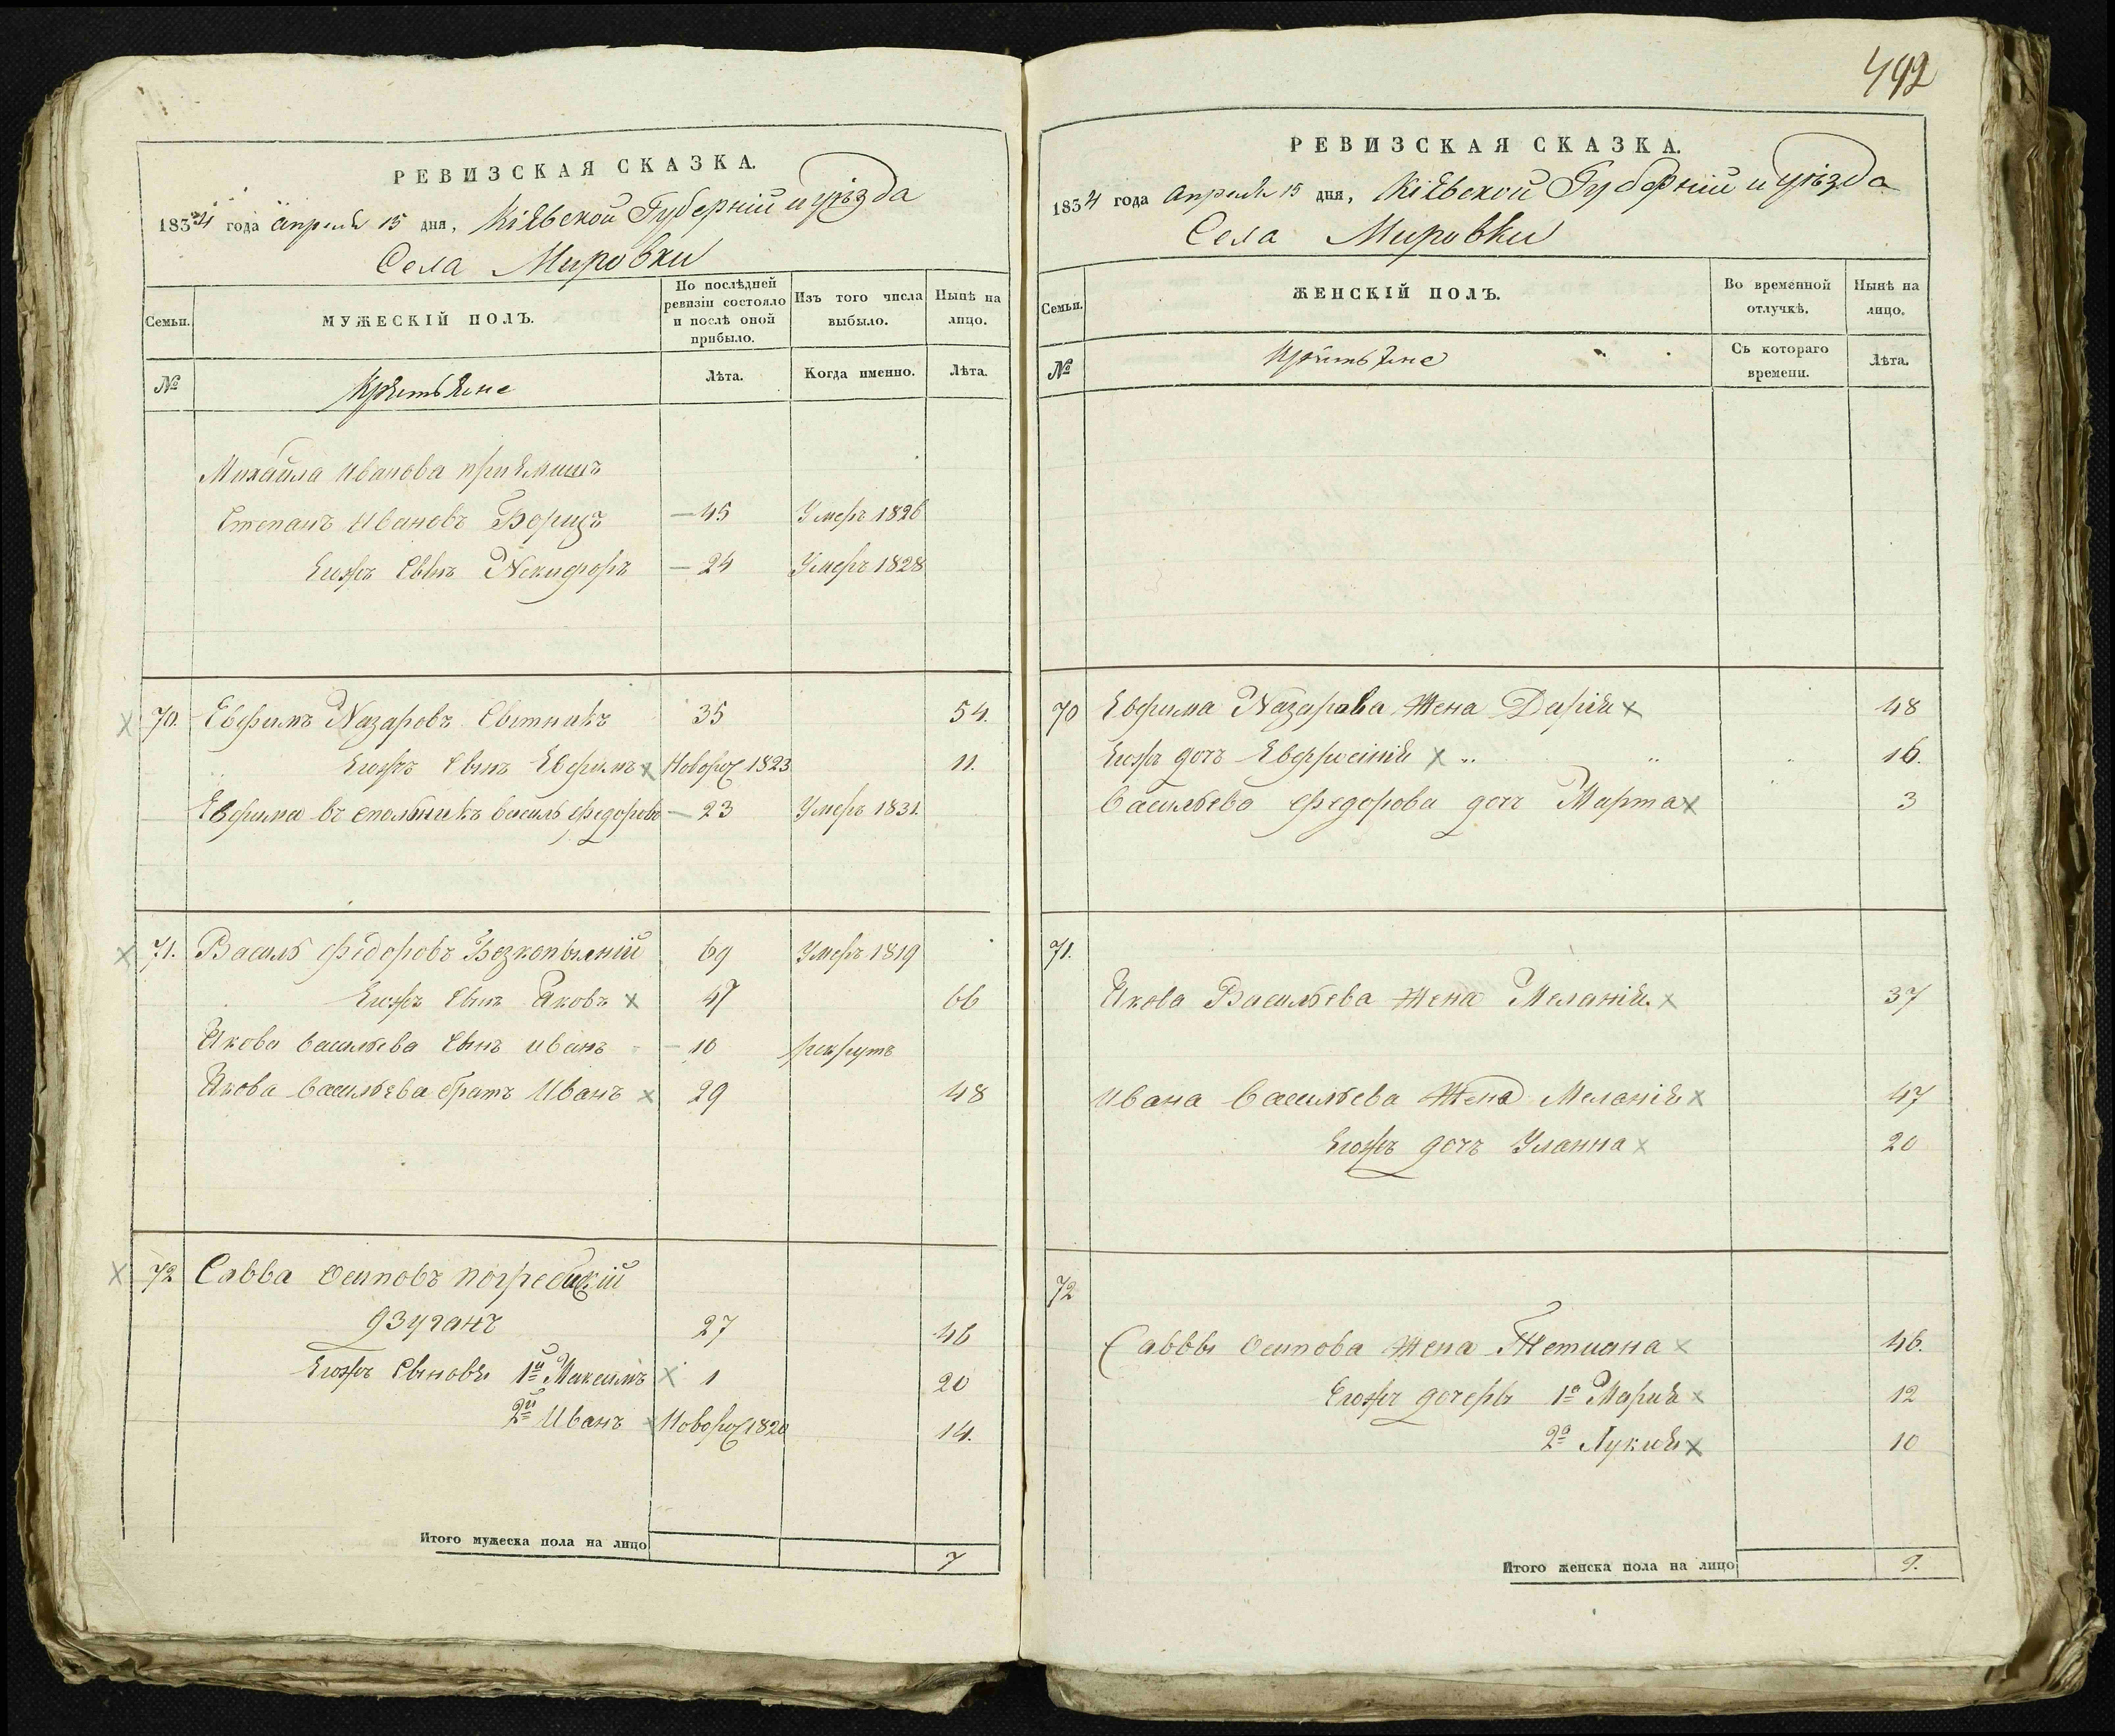 492
РЕВИЗСКАЯ СКАЗКА.
1834 года Апреля 15 дня, Кіевской Губерніи и уѣзда
Села Мировки
Семьи.
МУЖЕСКІЙ ПОЛЪ.
По послѣдней ревизіи состояло и послѣ оной прибыло.
Изъ того числа выбыло.
Нынѣ на лицо.
№
Крестьяне
Лѣта.
Когда именно.
Лѣта.
Михайла Иванова приемишъ
Степанъ Ивановъ Борищъ — 45 Умеръ 1826
Егожъ Сынъ Некифоръ — 24 Умеръ 1828
70. Евфимъ Назаровъ 35 54.
Егожъ Сынъ Евфимъ Новорож 1823 11.
Евфима въ спольникъ василь федоровъ — 23 Умеръ 1831.
71. Василь федоровъ Безкопыльній 69 Умеръ 1819
Егожъ Сынъ Яковъ 47 66
Якова васильева Сынъ иванъ — 10 рекрутъ
Якова васильева братъ Иванъ 29 48
72 Савва Осиповъ погребицкій
дзуганъ 27 46
Егожъ Сыновья 1й Максимъ 1 20
2й Иванъ Новорож 1820 14.
Итого мужеска пола на лицо 7
РЕВИЗСКАЯ СКАЗКА.
1834 года Апреля 15 дня, Кіевской Губерніи и уѣзда
Села Мировки
Семьи.
ЖЕНСКІЙ ПОЛЪ.
Во временной отлучкѣ.
Нынѣ на лицо.
№
Крестьяне
Съ котораго времени.
Лѣта.
70 Евфима Назарова Жена Дарія 48
Егожъ дочъ Евфросинія „ „ „ 16.
васильева федорова дочъ Марта 3
71.
Якова Васильева Жена Меланія 37
Ивана васильева Жена Меланія 47
Егожъ дочъ Улянна 20
72
Саввы Осипова Жена Тетиана 46.
Егожъ дочеры 1я Марія 12
2я Лукия 10
Итого женска пола на лицо 9.